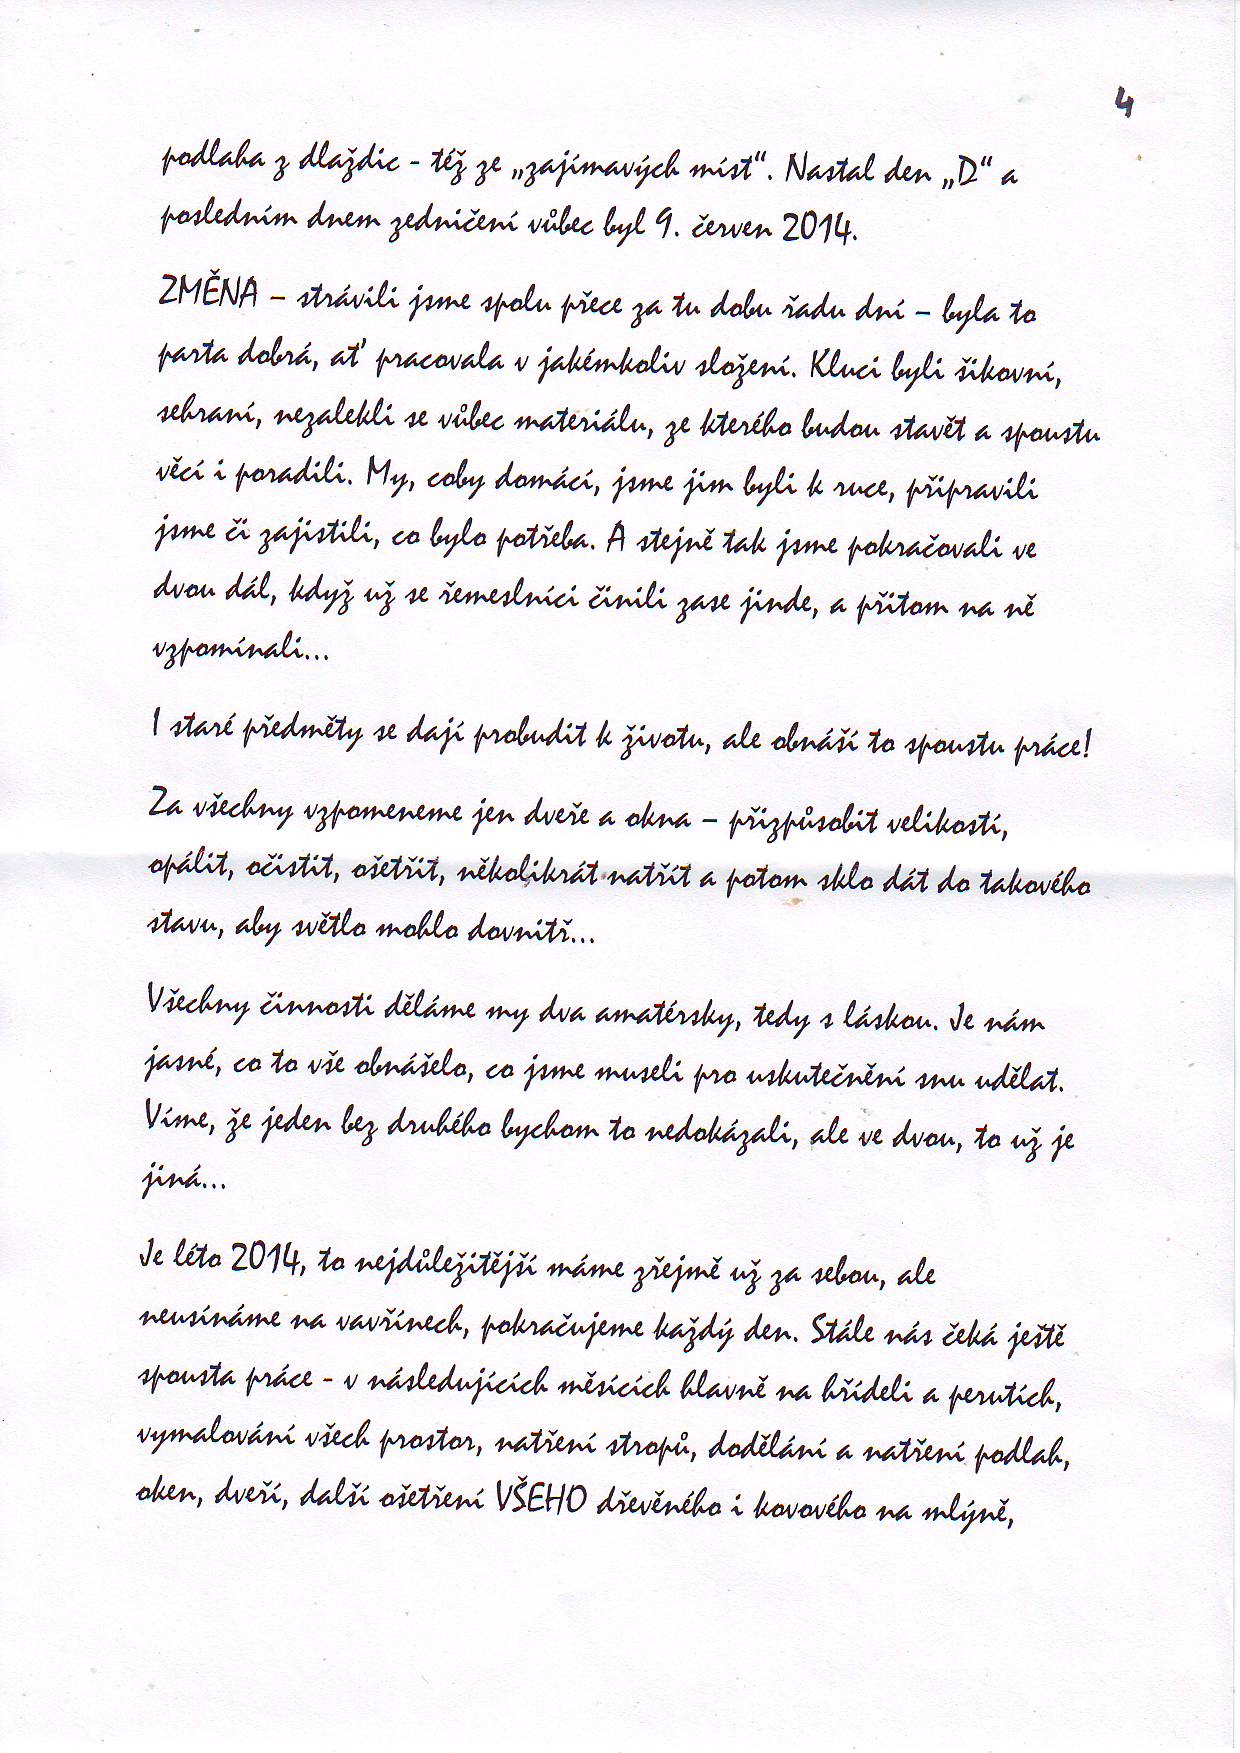 4
podlaha z dlaždic - též ze „zajímavých míst“. Nastal den „D“ a
posledním dnem zedničení vůbec byl 9. červen 2014.
ZMĚNA – strávili jsme spolu přece za tu dobu řadu dní – byla to
parta dobrá, ať pracovala v jakémkoliv složení. Kluci byli šikovní,
sehraní, nezalekli se vůbec materiálu, ze kterého budou stavět a spoustu
věcí i poradili. My, coby domácí, jsme jim byli k ruce, připravili
jsme či zajistili, co bylo potřeba. A stejně tak jsme pokračovali ve
dvou dál, když už se řemeslníci činili zase jinde, a přitom na ně
vzpomínali...
I staré předměty se dají probudit k životu, ale obnáší to spoustu práce!
Za všechny vzpomeneme jen dveře a okna – přizpůsobit velikostí,
opálit, očistit, ošetřit, několikrát natřít a potom sklo dát do takového
stavu, aby světlo mohlo dovnitř...
Všechny činnosti děláme my dva amatérsky, tedy s láskou. Je nám
jasné, co to vše obnášelo, co jsme museli pro uskutečnění snu udělat.
Víme, že jeden bez druhého bychom to nedokázali, ale ve dvou, to už je
jiná...
Je léto 2014, to nejdůležitější máme zřejmě už za sebou, ale
neusínáme na vavřínech, pokračujeme každý den. Stále nás čeká ještě
spousta práce - v následujících měsících hlavně na hřídeli a perutích,
vymalování všech prostor, natření stropů, dodělání a natření podlah,
oken, dveří, další ošetření VŠEHO dřevěného i kovového na mlýně,